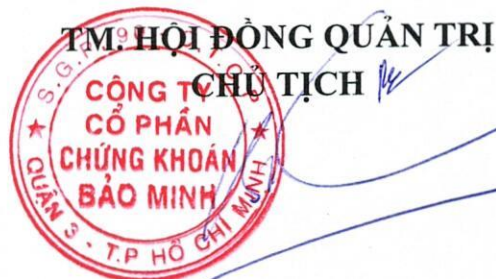 TM. HỘI ĐỒNG QUẢN TRỊ
CHỦ TỊCH
CÔNG TY
CỔ PHẦN
CHỨNG KHOÁN
BẢO MINH
QUẬN 3 - T.P HỒ CHÍ MINH